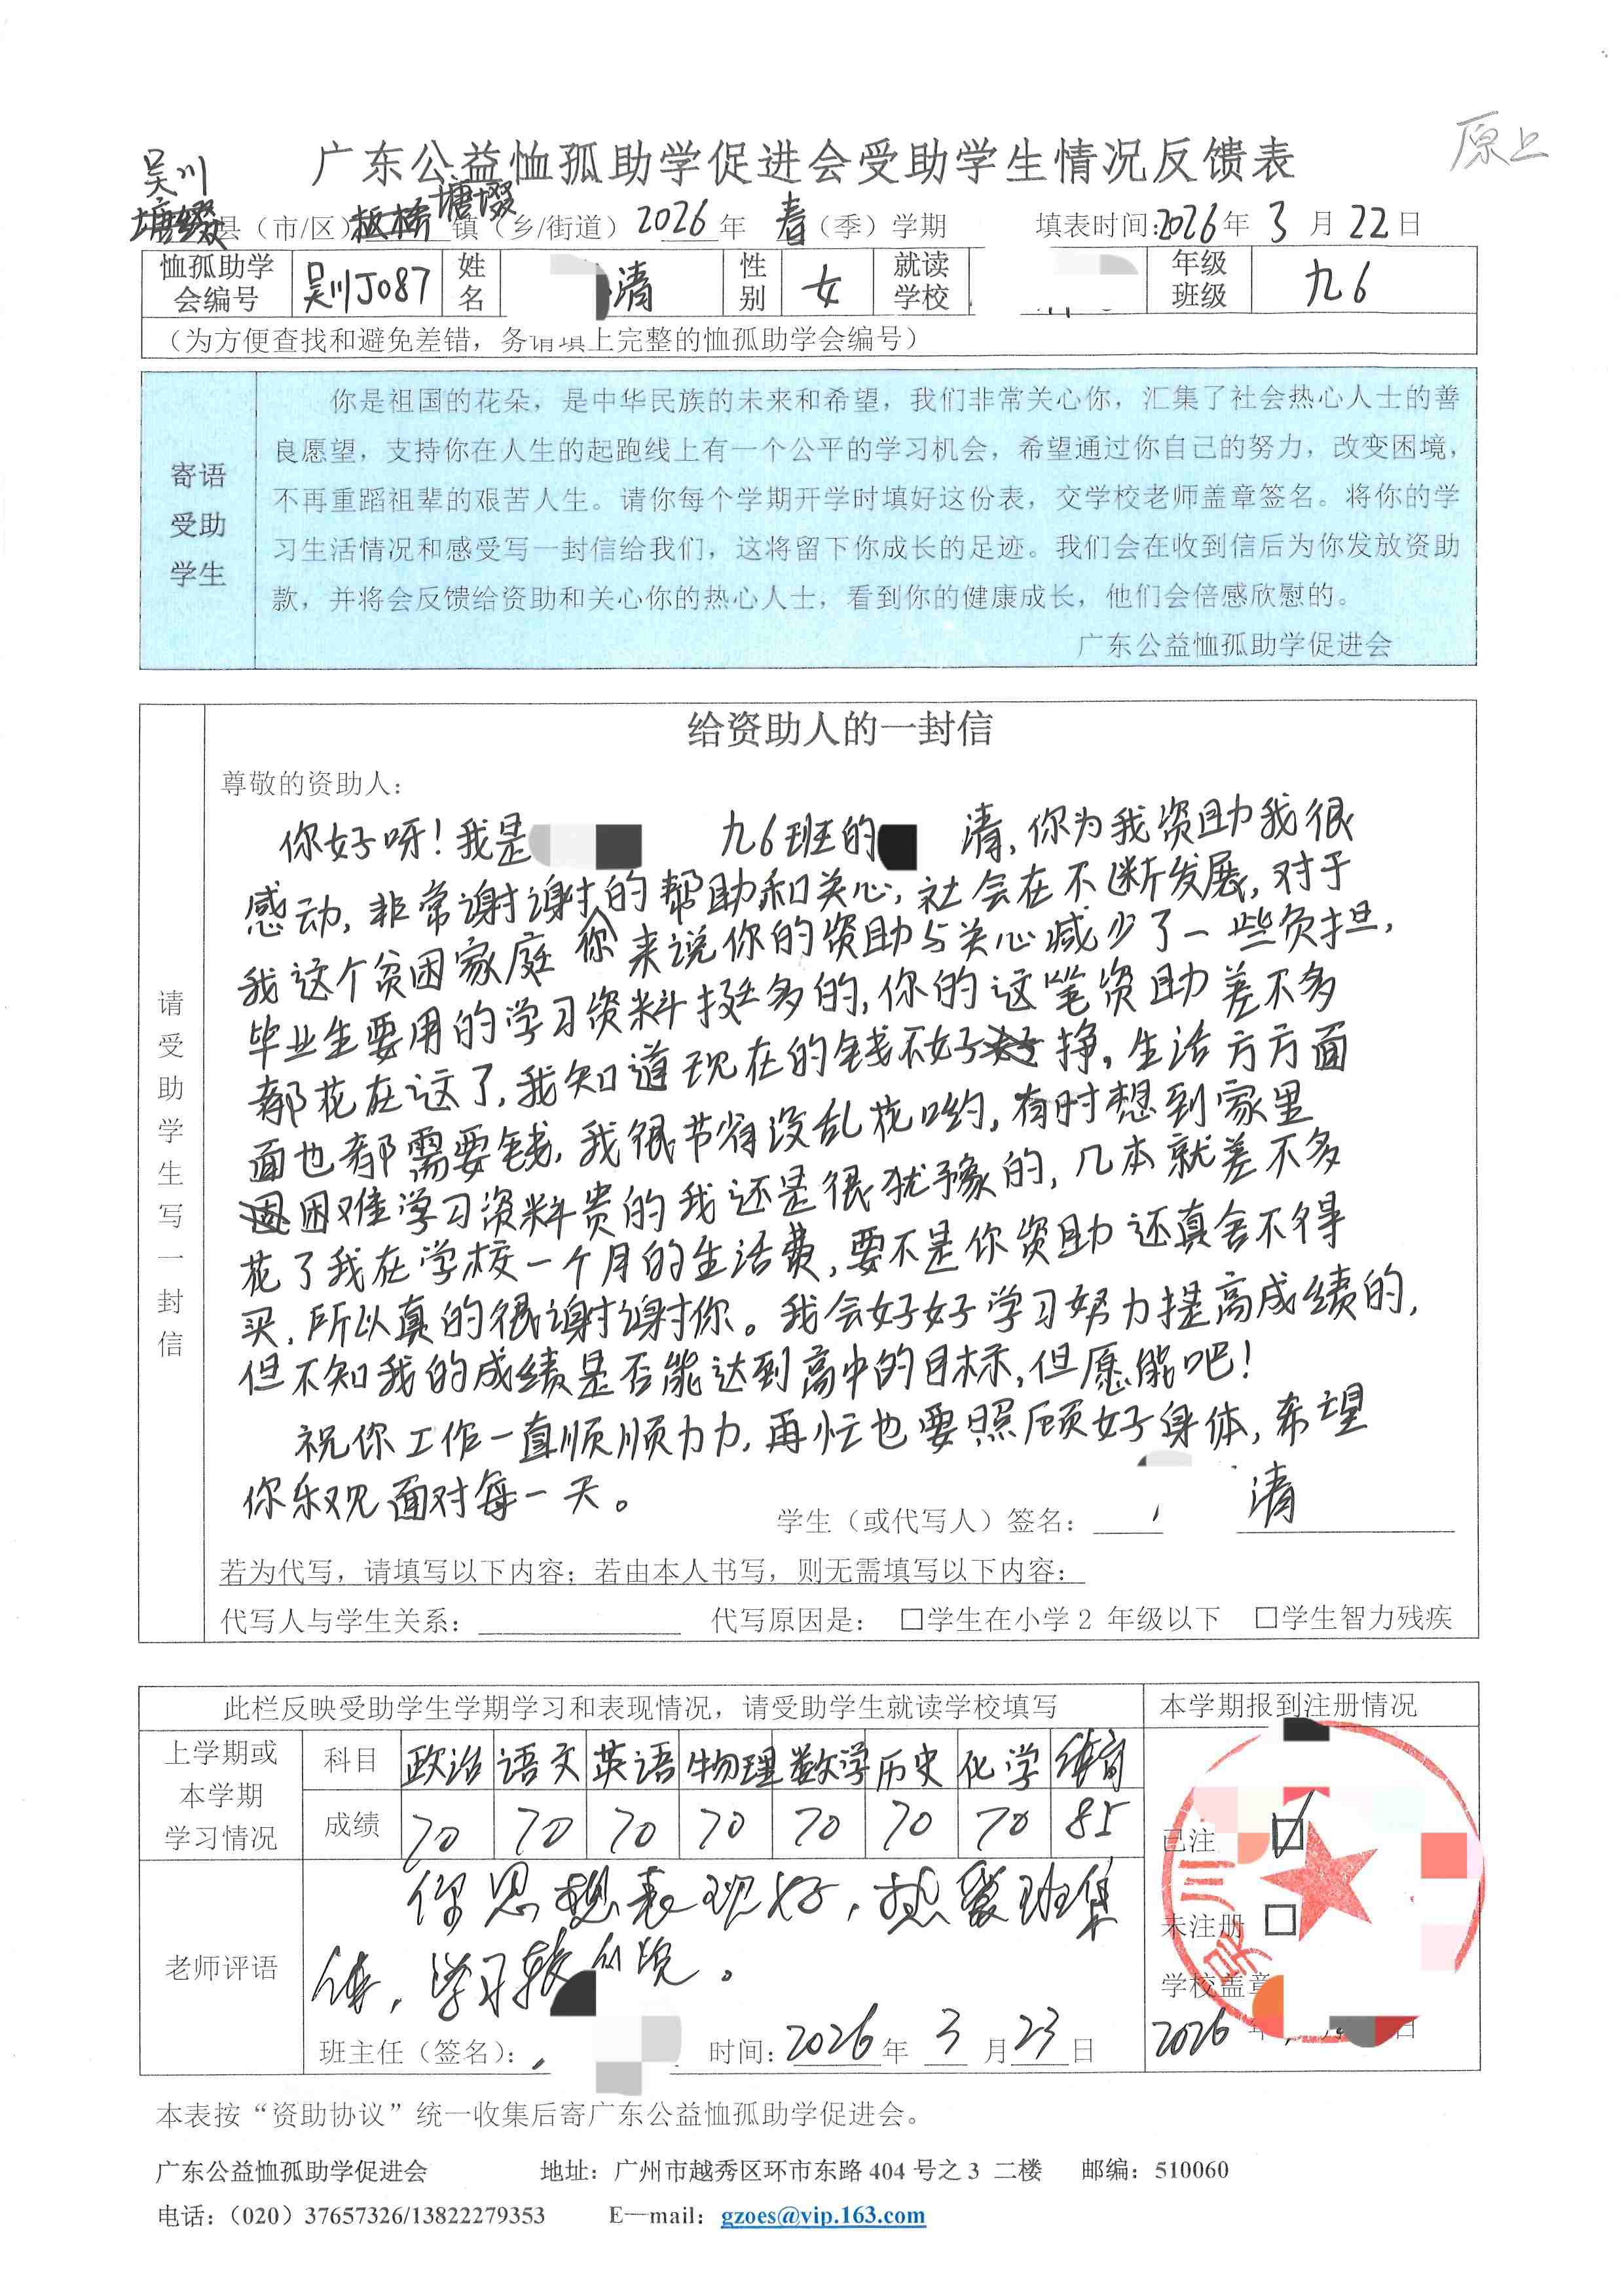 原上
广东公益恤孤助学促进会受助学生情况反馈表
吴川
塘㙍
塘缀县（市/区）板桥镇（乡/街道）2026年 春（季）学期 填表时间:2026年3月22日
恤孤助学会编号 吴川J087 姓名 清 性别 女 就读学校 年级班级 九6
（为方便查找和避免差错，务请填上完整的恤孤助学会编号）
寄语受助学生
你是祖国的花朵，是中华民族的未来和希望，我们非常关心你，汇集了社会热心人士的善
良愿望，支持你在人生的起跑线上有一个公平的学习机会，希望通过你自己的努力，改变困境，
不再重蹈祖辈的艰苦人生。请你每个学期开学时填好这份表，交学校老师盖章签名。将你的学
习生活情况和感受写一封信给我们，这将留下你成长的足迹。我们会在收到信后为你发放资助
款，并将会反馈给资助和关心你的热心人士，看到你的健康成长，他们会倍感欣慰的。
广东公益恤孤助学促进会
请受助学生写一封信
给资助人的一封信
尊敬的资助人：
你好呀！我是 九6班的 清，你为我资助我很
感动，非常谢谢你的帮助和关心，社会在不断发展，对于
我这个贫困家庭来说你的资助与关心减少了一些负担，
毕业生要用的学习资料挺多的，你的这笔资助差不多
都花在这了，我知道现在的钱不好挣，生活方方面
面也都需要钱，我很节省没乱花哟，有时想到家里
困难学习资料贵的我还是很犹豫的，几本就差不多
花了我在学校一个月的生活费，要不是你资助还真舍不得
买，所以真的很谢谢你。我会好好学习努力提高成绩的，
但不知我的成绩是否能达到高中的目标，但愿能吧！
祝你工作一直顺顺力力，再忙也要照顾好身体，希望
你乐观面对每一天。
学生（或代写人）签名： 清
若为代写，请填写以下内容；若由本人书写，则无需填写以下内容：
代写人与学生关系： 代写原因是： □学生在小学2 年级以下 □学生智力残疾
此栏反映受助学生学期学习和表现情况，请受助学生就读学校填写 本学期报到注册情况
上学期或本学期学习情况
科目 政治 语文 英语 物理 数学 历史 化学 体育
成绩 70 70 70 70 70 70 70 85
已注 ☑
未注册 □
学校盖章
2026 年 日
吴川
老师评语
你思想表现好，热爱班集
体，学习较
班主任（签名）： 时间：2026年3月23日
本表按“资助协议”统一收集后寄广东公益恤孤助学促进会。
广东公益恤孤助学促进会 地址：广州市越秀区环市东路404号之3 二楼 邮编：510060
电话：（020）37657326/13822279353 E—mail：gzoes@vip.163.com